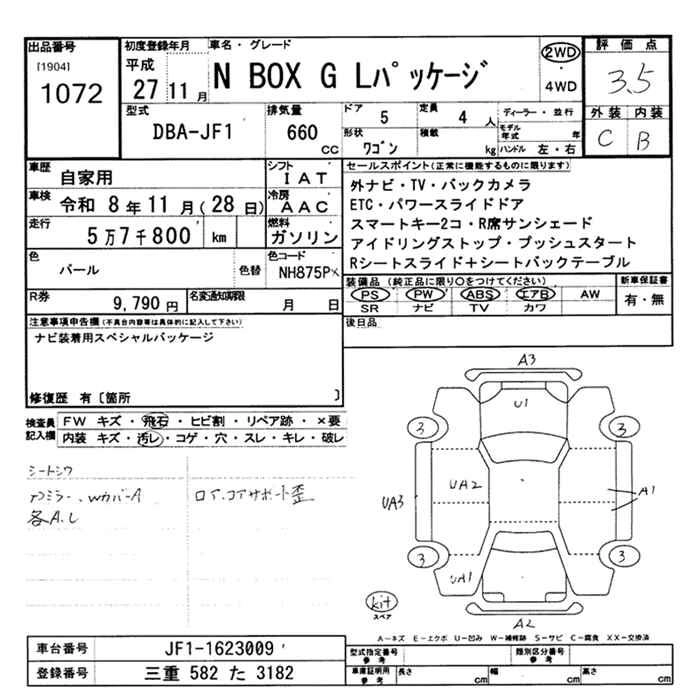 出品番号
[1904]
1072
初度登録年月
平成
27 11 月
車名・グレード
N BOX G Lパッケージ
2WD
・
4WD
評価点
3.5
外装 内装
C B
型式
DBA-JF1
排気量
660 cc
ドア
5
定員
4 人
形状
ワゴン
積載
kg
ディーラー・並行
モデル年式 年
ハンドル 左・右
車歴
自家用
シフト
IAT
車検
令和 8 年 11 月 ( 28 日)
冷房
AAC
走行
5 万 7 千 800 km
燃料
ガソリン
色
パール
色替
色コード
NH875P
R券
9,790 円
名変通知期限
月 日
セールスポイント(正常に機能するものに限ります)
外ナビ・TV・バックカメラ
ETC・パワースライドドア
スマートキー2コ・R席サンシェード
アイドリングストップ・プッシュスタート
Rシートスライド+シートバックテーブル
装備品 (純正品に限り〇をつけてください)
PS PW ABS エアB AW
SR ナビ TV カワ
新車保証書
有・無
後日品
注意事項申告欄 (不具合内容等は具体的に記入して下さい)
ナビ装着用スペシャルパッケージ
修復歴 有〔箇所 〕
検査員記入欄
FW キズ・飛石・ヒビ割・リペア跡・×要
内装 キズ・汚レ・コゲ・穴・スレ・キレ・破レ
シートシワ
WカバーA
各A.L
ロア、コアサポート歪
A3
U1
3
3
UA2
UA3
A1
3
3
UA1
kit
スペア
A2
A-キズ E-エクボ U-凹み W-補修跡 S-サビ C-腐食 XX-交換済
車台番号
JF1-1623009
登録番号
三重 582 た 3182
型式指定番号
参考
類別区分番号
参考
車庫証明用
参考
長さ cm
幅 cm
高さ cm